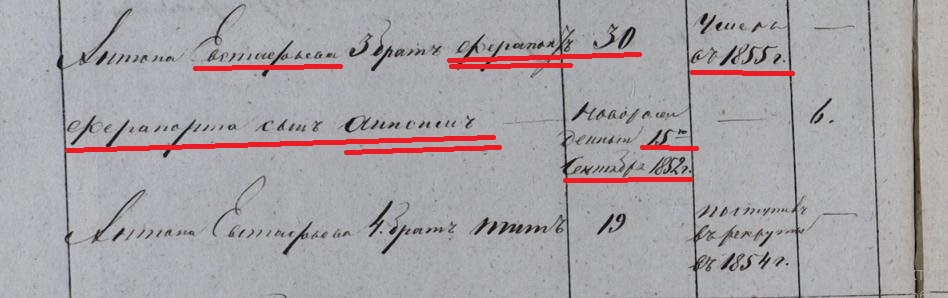 Антона Евстафьева 3 братъ Ферапонтъ 30 Умеръ
въ 1855 г.
Ферапонта сынъ Антонъ Новорож
денный 15го 6.
Сентября 1852 г.
Антона Евстафьева 4. братъ Титъ 19 поступилъ
въ рекруты
въ 1854 г.